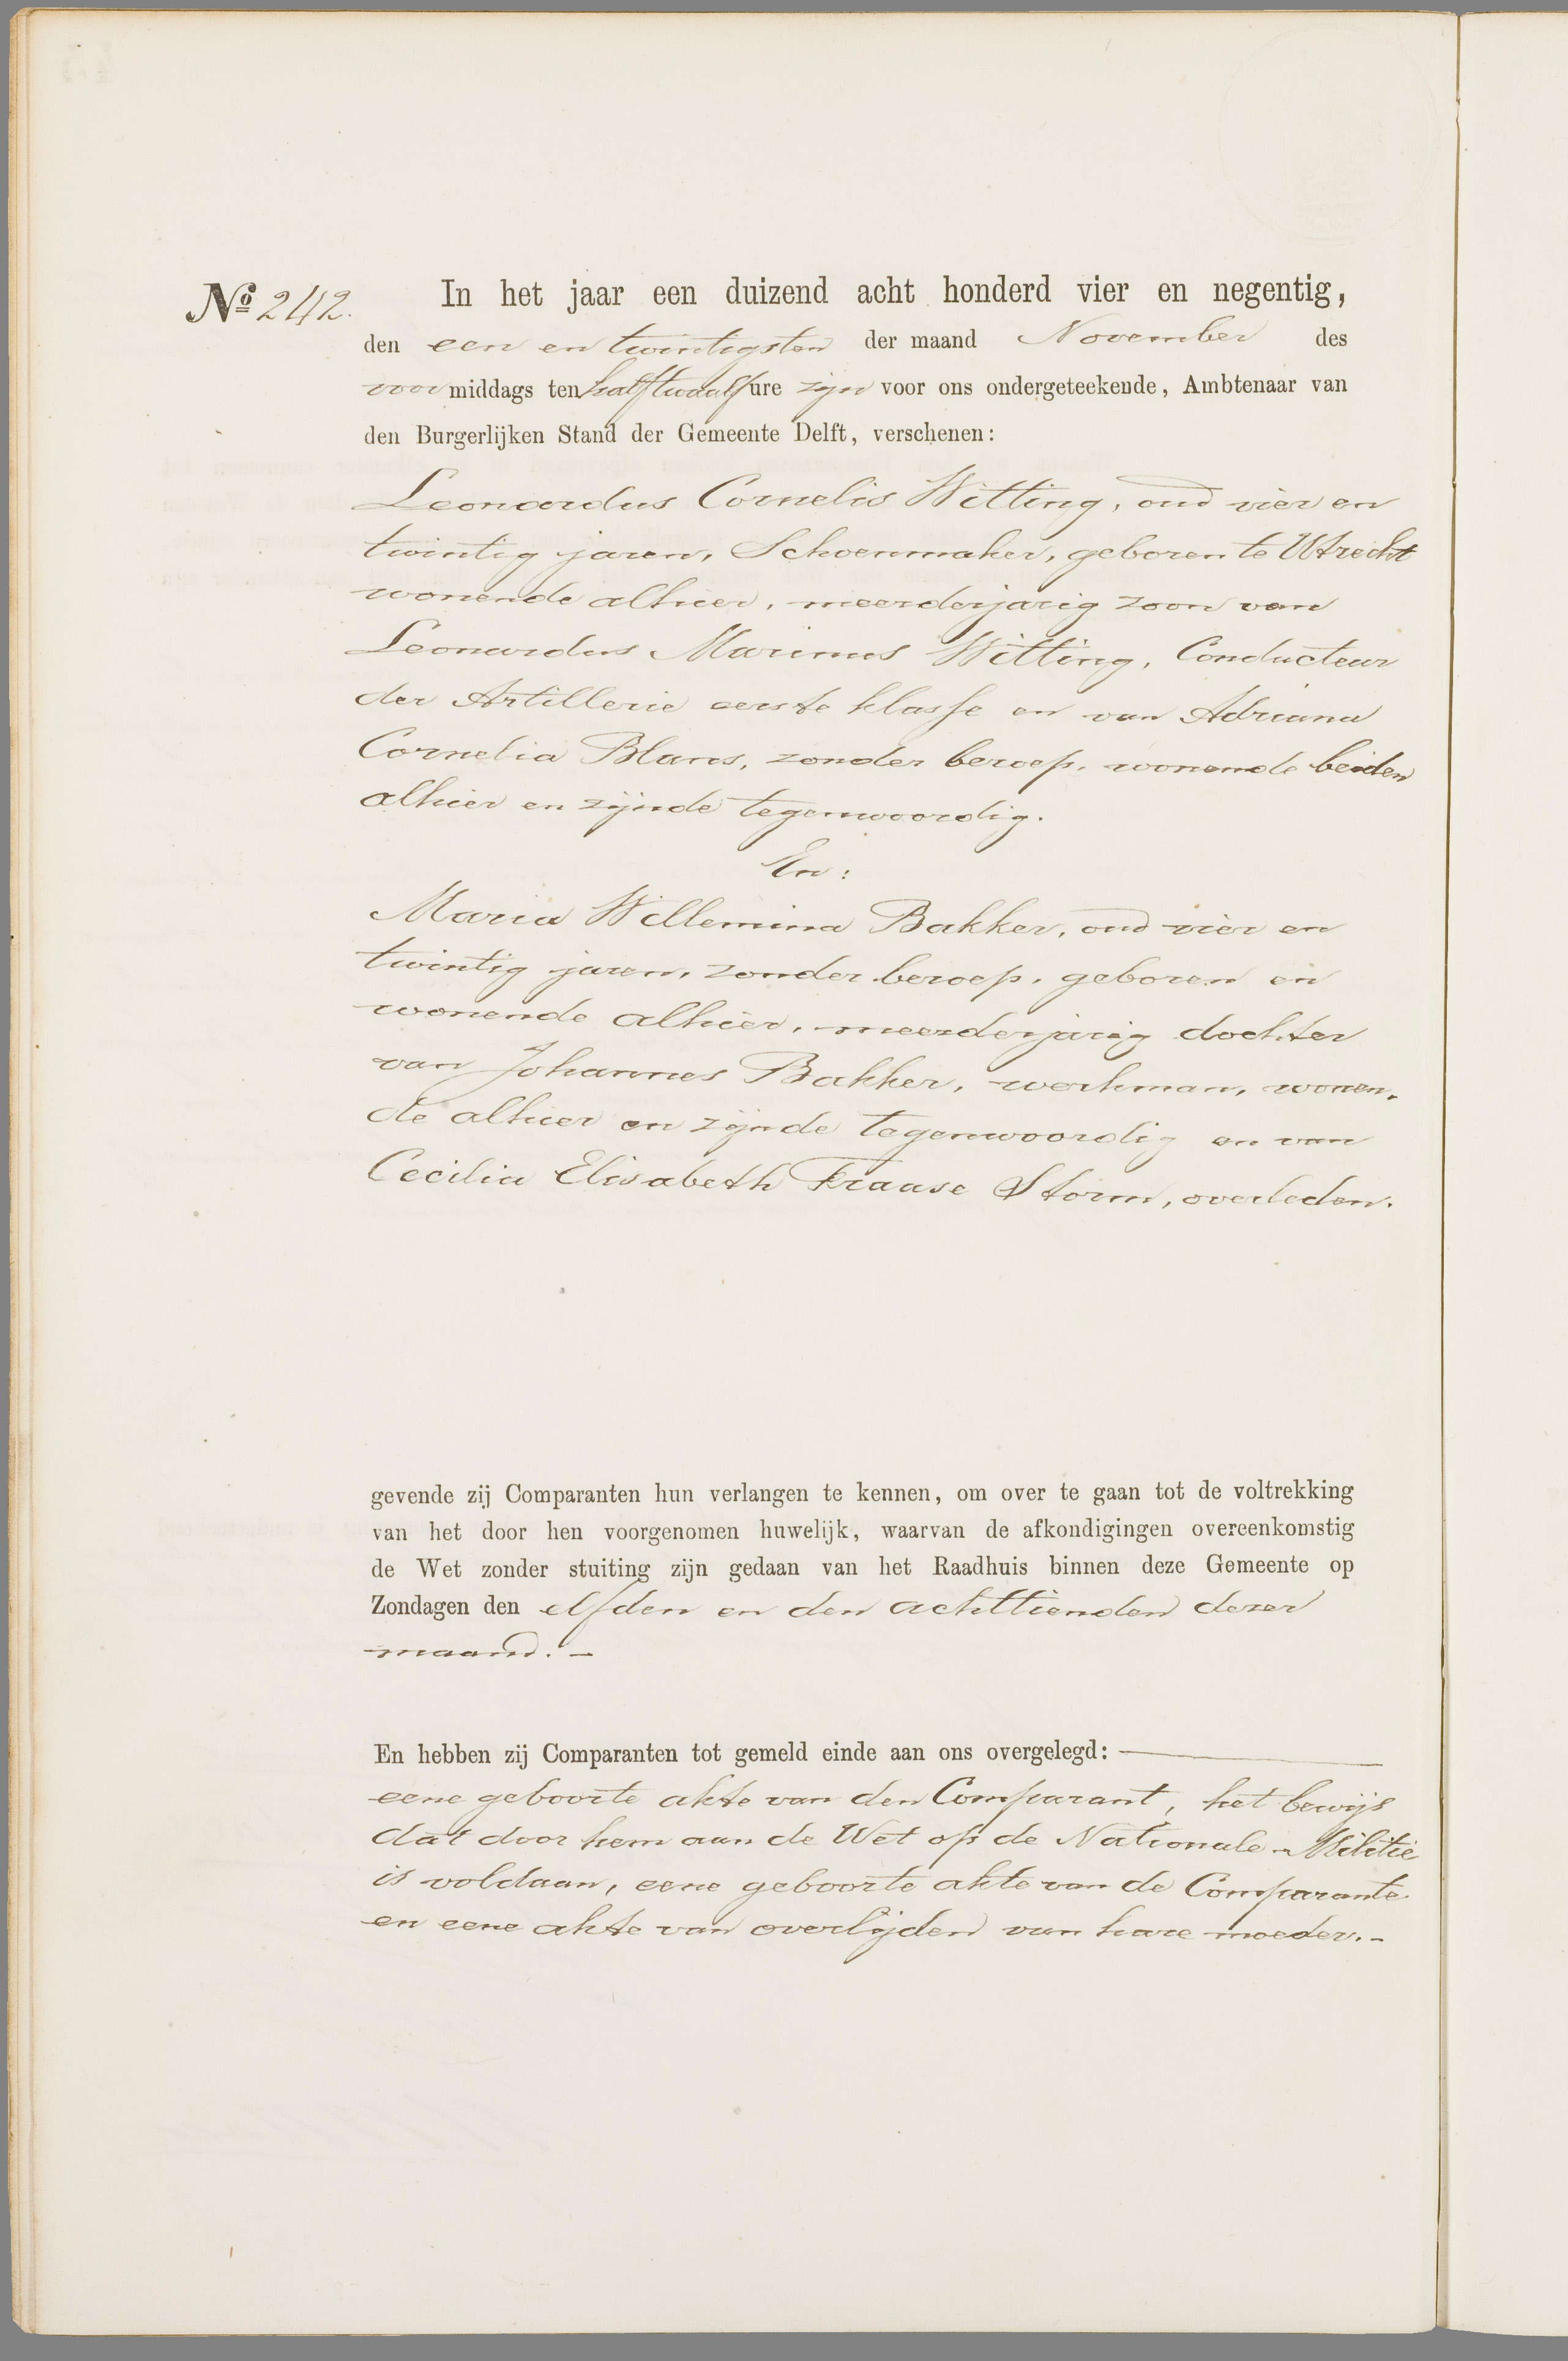 No 242. In het jaar een duizend acht honderd vier en negentig,
den een en twintigsten der maand November des
voormiddags ten half twaalf ure zijn voor ons ondergeteekende, Ambtenaar van
den Burgerlijken Stand der Gemeente Delft, verschenen:
Leonardus Cornelis Witting, oud vier en
twintig jaren, Schoenmaker, geboren te Utrecht
wonende alhier, meerderjarig zoon van
Leonardus Marinus Witting, Conducteur
der Artillerie eerste klasse en van Adriana
Cornelia Blans, zonder beroep, wonende beiden
alhier en zijnde tegenwoordig.
En:
Maria Willemina Bakker, oud vier en
twintig jaren, zonder beroep, geboren en
wonende alhier, meerderjarig dochter
van Johannes Bakker, werkman, wonen-
de alhier en zijnde tegenwoordig en van
Cecilia Elisabeth Fraase Storm, overleden.
gevende zij Comparanten hun verlangen te kennen, om over te gaan tot de voltrekking
van het door hen voorgenomen huwelijk, waarvan de afkondigingen overeenkomstig
de Wet zonder stuiting zijn gedaan van het Raadhuis binnen deze Gemeente op
Zondagen den elfden en den achttienden dezer
maand. -
En hebben zij Comparanten tot gemeld einde aan ons overgelegd:
eene geboorte akte van den Comparant, het bewijs
dat door hem aan de Wet op de Nationale Militie
is voldaan, eene geboorte akte van de Comparante
en eene akte van overlijden van hare moeder. -